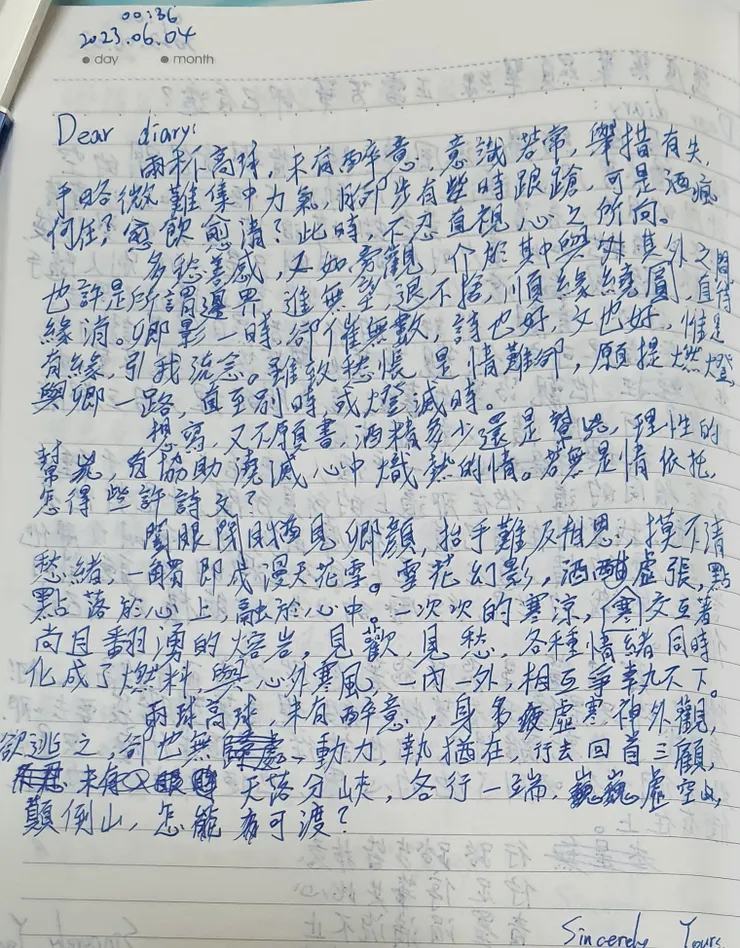 00:36
2023.06.04
day month
Dear diary:
兩杯高球，未有醉意，意識若常，舉措有失，
手略微難集中力氣，腳步有些時踉蹌，可是酒瘋
何在？愈飲愈清？此時，不忍直視心之所向。
多愁善感，又如旁觀，介於其中與外其外之間
也許是所謂邊界，進無望，退不捨，順緣繞圓，直待
緣消。卿影一時，卻催無數，詩也好，文也好，惟是
有緣，引我流念。雖致愁悵，是情難卻，願提燃燈，
與卿一路，直至別時，或燈滅時。
想寫，又不願書，酒精多少還是幫兇，理性的
幫兇，有協助澆滅心中熾熱的情。若無是情依托，
怎得些許詩文？
閉眼閉目猶見卿顏，抬手難及相思，摸不清
愁緒，一觸即成漫天花雪。雪花幻影，酒酣虛張，點
點落於心上，融於心中。一次次的寒涼，寒交互著
尚且翻湧的熔岩，見歡，見愁，各種情緒同時
化成了燃料，與心外寒風，一內一外，相互爭執不下。
兩球高球，未有醉意，身多疲虛寒，神外觀，
欲逃之，卻也無動力，執猶在，行去回首三顧，
未有天落分峽，各行一端，巍巍虛空山，
顛倒山，怎能有可渡？
Sincerely Yours,